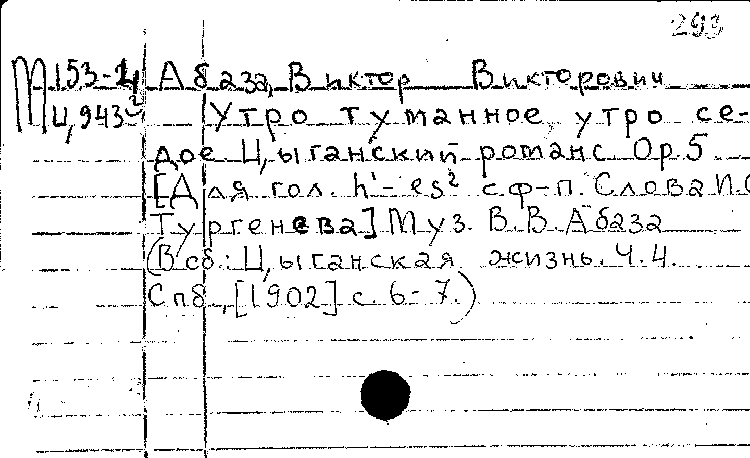 293
М153-2, Абаза, Виктор Викторович
Ц,943² Утро туманное, утро се-
дое Цыганский романс Ор.5
[Для гол. h'-es² с ф-п. Слова И.С
Тургенева] Муз. В.В.Абаза
(В сб.: Цыганская жизнь. Ч.4.
Спб., [1902] с. 6-7.)